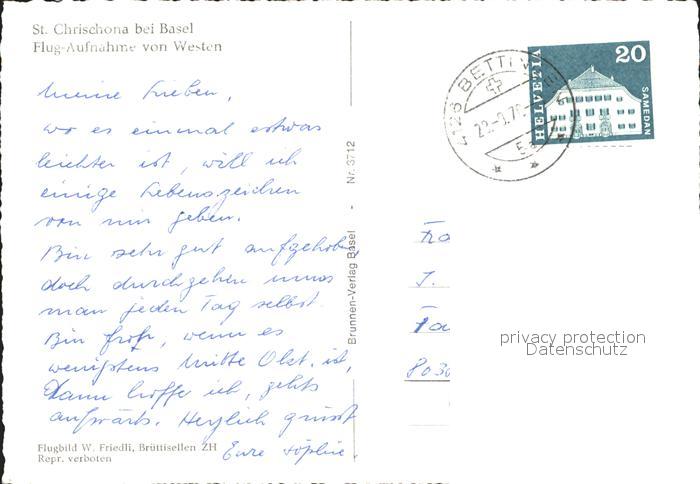 St. Chrischona bei Basel
Flug-Aufnahme von Westen
Meine Lieben,
wo es einmal etwas
leichter ist, will ich
einige Lebenszeichen
von mir geben.
Bin sehr gut aufgehoben
doch durchgehen muss
man jeden Tag selbst.
Bin froh, wenn es
wenigstens Mitte Okt. ist,
Dann hoffe ich, gehts
aufwärts. Herzlich grüsst
Eure Sophie.
Flugbild W. Friedli, Brüttisellen ZH
Repr. verboten
Brunnen-Verlag Basel - Nr. 3712
4126 BETTI
HELVETIA
20
SAMEDAN
J.
privacy protection
Datenschutz